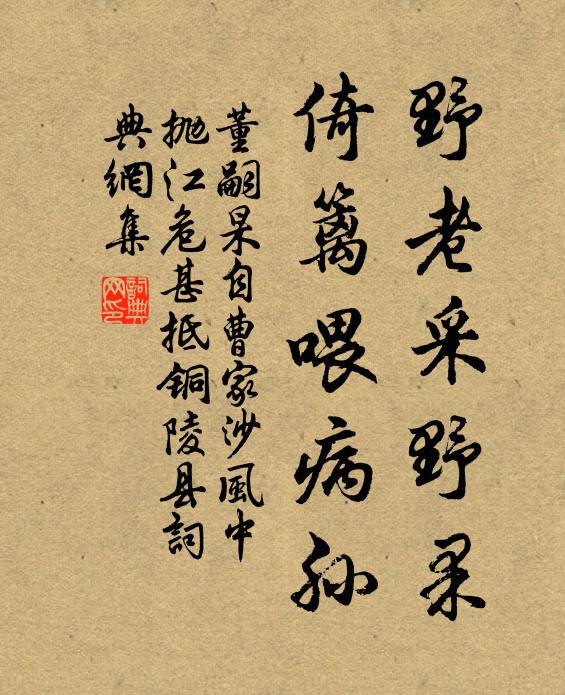 野老采野果
倚篱喂病孙
董嗣杲自曹家沙風中
抛江危甚抵铜陵县詞
典網集
詞典
网印